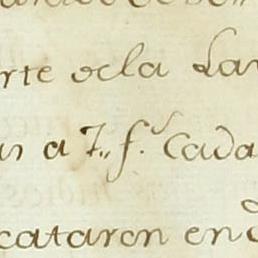 rte dela Lan
as a 7,, f.s Cada
cataron en